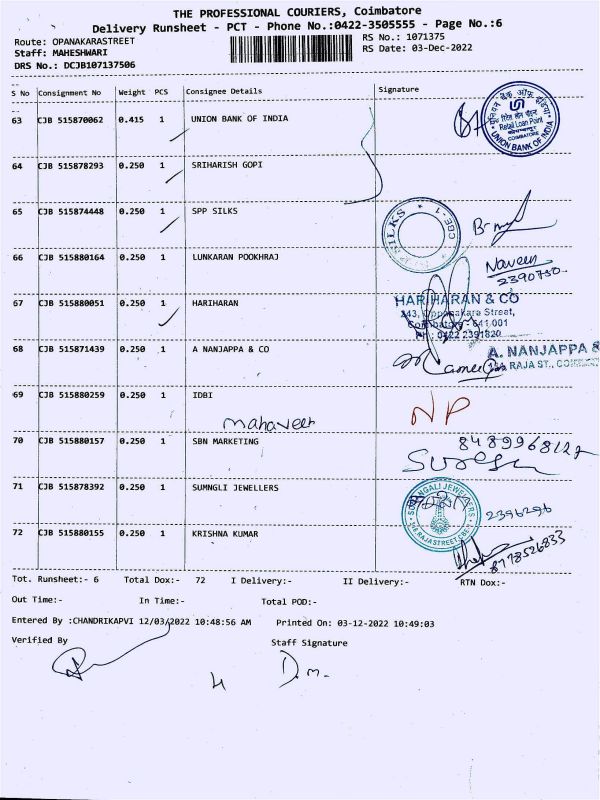 THE PROFESSIONAL COURIERS, Coimbatore
Delivery Runsheet - PCT - Phone No.:0422-3505555 - Page No.:6
Route: OPANAKARASTREET
Staff: MAHESHWARI
DRS No.: DCJB107137506
RS No.: 1071375
RS Date: 03-Dec-2022
S No Consignment No Weight PCS Consignee Details Signature
63 CJB 515870062 0.415 1 UNION BANK OF INDIA
Retail Loan Point
COIMBATORE
UNION BANK OF INDIA
64 CJB 515878293 0.250 1 SRIHARISH GOPI
65 CJB 515874448 0.250 1 SPP SILKS
SILKS * CBE-1
66 CJB 515880164 0.250 1 LUNKARAN POOKHRAJ
Naveen
2390750
67 CJB 515880051 0.250 1 HARIHARAN
HARIHARAN & CO
343, Oppanakara Street,
Coimbatore - 641 001
PH: 0422 2391820
68 CJB 515871439 0.250 1 A NANJAPPA & CO
A. NANJAPPA &
RAJA ST., COIMBAT
69 CJB 515880259 0.250 1 IDBI
NP
mahaveer
70 CJB 515880157 0.250 1 SBN MARKETING
8489968127
Suresh
71 CJB 515878392 0.250 1 SUMNGLI JEWELLERS
SUMANGALI JEWELLERS
RAJA STREET CBE-1
2396296
72 CJB 515880155 0.250 1 KRISHNA KUMAR
8778526833
Tot. Runsheet:- 6 Total Dox:- 72 I Delivery:- II Delivery:- RTN Dox:-
Out Time:- In Time:- Total POD:-
Entered By :CHANDRIKAPVI 12/03/2022 10:48:56 AM Printed On: 03-12-2022 10:49:03
Verified By Staff Signature
D.m.